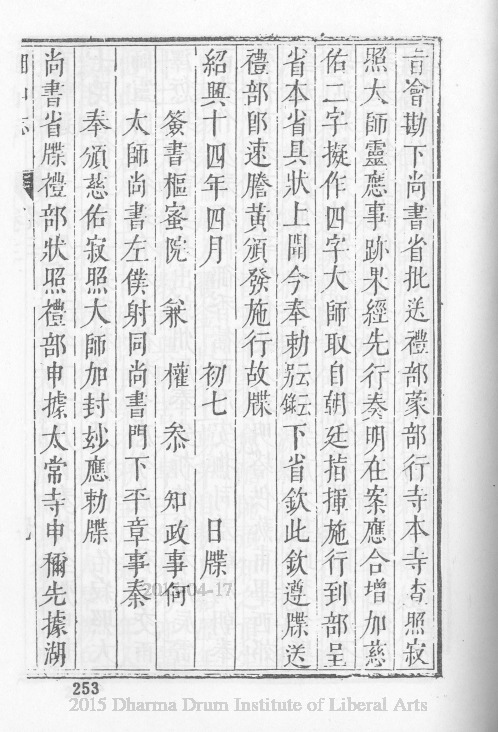 旨會勘下尚書省批送禮部蒙部行寺本寺查照寂
照大師靈應事跡果經先行奏明在案應合增加慈
佑二字擬作四字大師取自朝廷指揮施行到部呈
省本省具狀上聞今奉勅旨云云錄云云下省欽此欽遵牒送
禮部卽速謄黃頒發施行故牒
紹興十四年四月 初七 日牒
簽書樞蜜院 兼 權 叅 知政事何
太師尚書左僕射同尚書門下平章事秦
奉頒慈佑寂照大師加封妙應勅牒
尚書省牒禮部狀照禮部申據太常寺申稱先據湖
253
2015-04-17
2015 Dharma Drum Institute of Liberal Arts